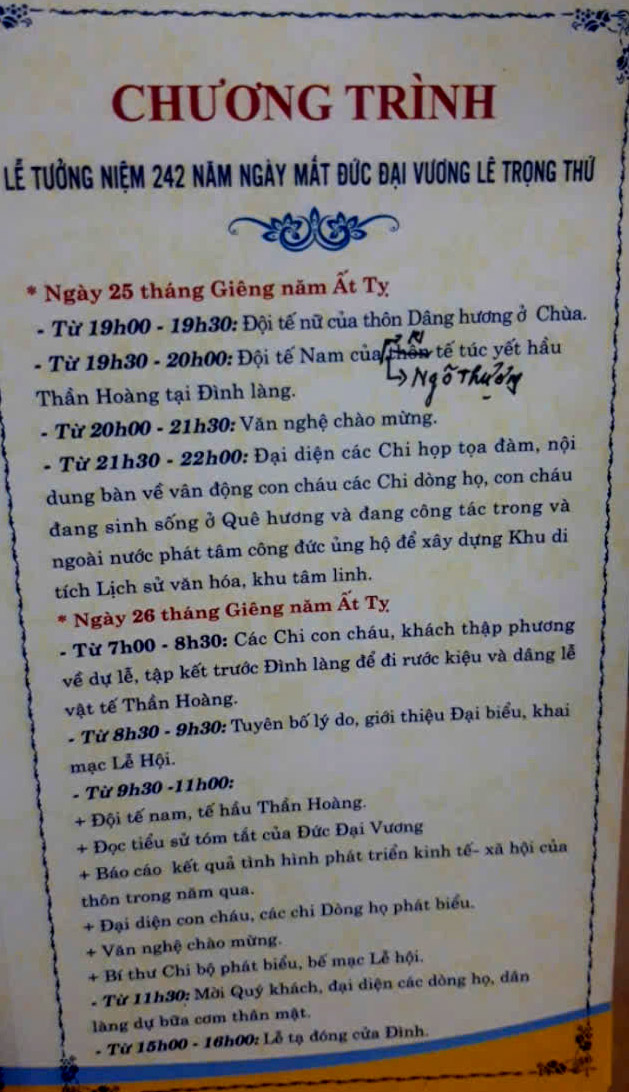 CHƯƠNG TRÌNH
LỄ TƯỞNG NIỆM 242 NĂM NGÀY MẤT ĐỨC ĐẠI VƯƠNG LÊ TRỌNG THỨ
* Ngày 25 tháng Giêng năm Ất Tỵ
- Từ 19h00 - 19h30: Đội tế nữ của thôn Dâng hương ở Chùa.
- Từ 19h30 - 20h00: Đội tế Nam của thôn tế túc yết hầu
Ngõ Thượng
Thần Hoàng tại Đình làng.
- Từ 20h00 - 21h30: Văn nghệ chào mừng.
- Từ 21h30 - 22h00: Đại diện các Chi họp tọa đàm, nội
dung bàn về vân động con cháu các Chi dòng họ, con cháu
đang sinh sống ở Quê hương và đang công tác trong và
ngoài nước phát tâm công đức ủng hộ để xây dựng Khu di
tích Lịch sử văn hóa, khu tâm linh.
* Ngày 26 tháng Giêng năm Ất Tỵ
- Từ 7h00 - 8h30: Các Chi con cháu, khách thập phương
về dự lễ, tập kết trước Đình làng để đi rước kiệu và dâng lễ
vật tế Thần Hoàng.
- Từ 8h30 - 9h30: Tuyên bố lý do, giới thiệu Đại biểu, khai
mạc Lễ Hội.
- Từ 9h30 -11h00:
+ Đội tế nam, tế hầu Thần Hoàng.
+ Đọc tiểu sử tóm tắt của Đức Đại Vương
+ Báo cáo kết quả tình hình phát triển kinh tế- xã hội của
thôn trong năm qua.
+ Đại diện con cháu, các chi Dòng họ phát biểu.
+ Văn nghệ chào mừng.
+ Bí thư Chi bộ phát biểu, bế mạc Lễ hội.
- Từ 11h30: Mời Quý khách, đại diện các dòng họ, dân
làng dự bữa cơm thân mật.
- Từ 15h00 - 16h00: Lễ tạ đóng cửa Đình.